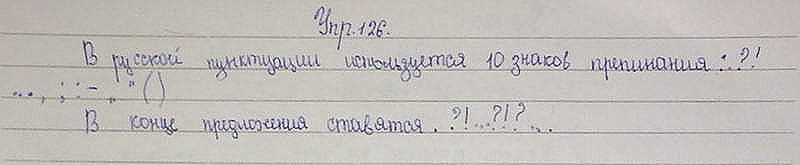 Упр. 126.
В русской пунктуации используется 10 знаков препинания : . ? !
... , ; : – „ “ ( )
В конце предложения ставятся . ?! ... ?! ? ...